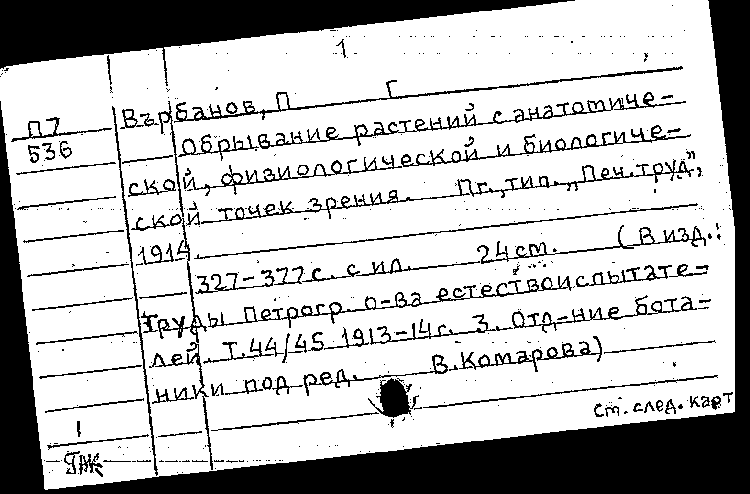 1
П7
536
Върбанов, П Г
Обрывание растений с анатомиче-
ской, физиологической и биологиче-
ской точек зрения. Пг., тип. „Печ. труд",
1914.
327-377 с. с ил. 24 ст. (В изд.:
Труды Петрогр. о-ва естествоиспытате-
лей. Т. 44/45 1913-14г. 3. Отд-ние бота-
ники под ред. В. Комарова)
1
ст. след. карт